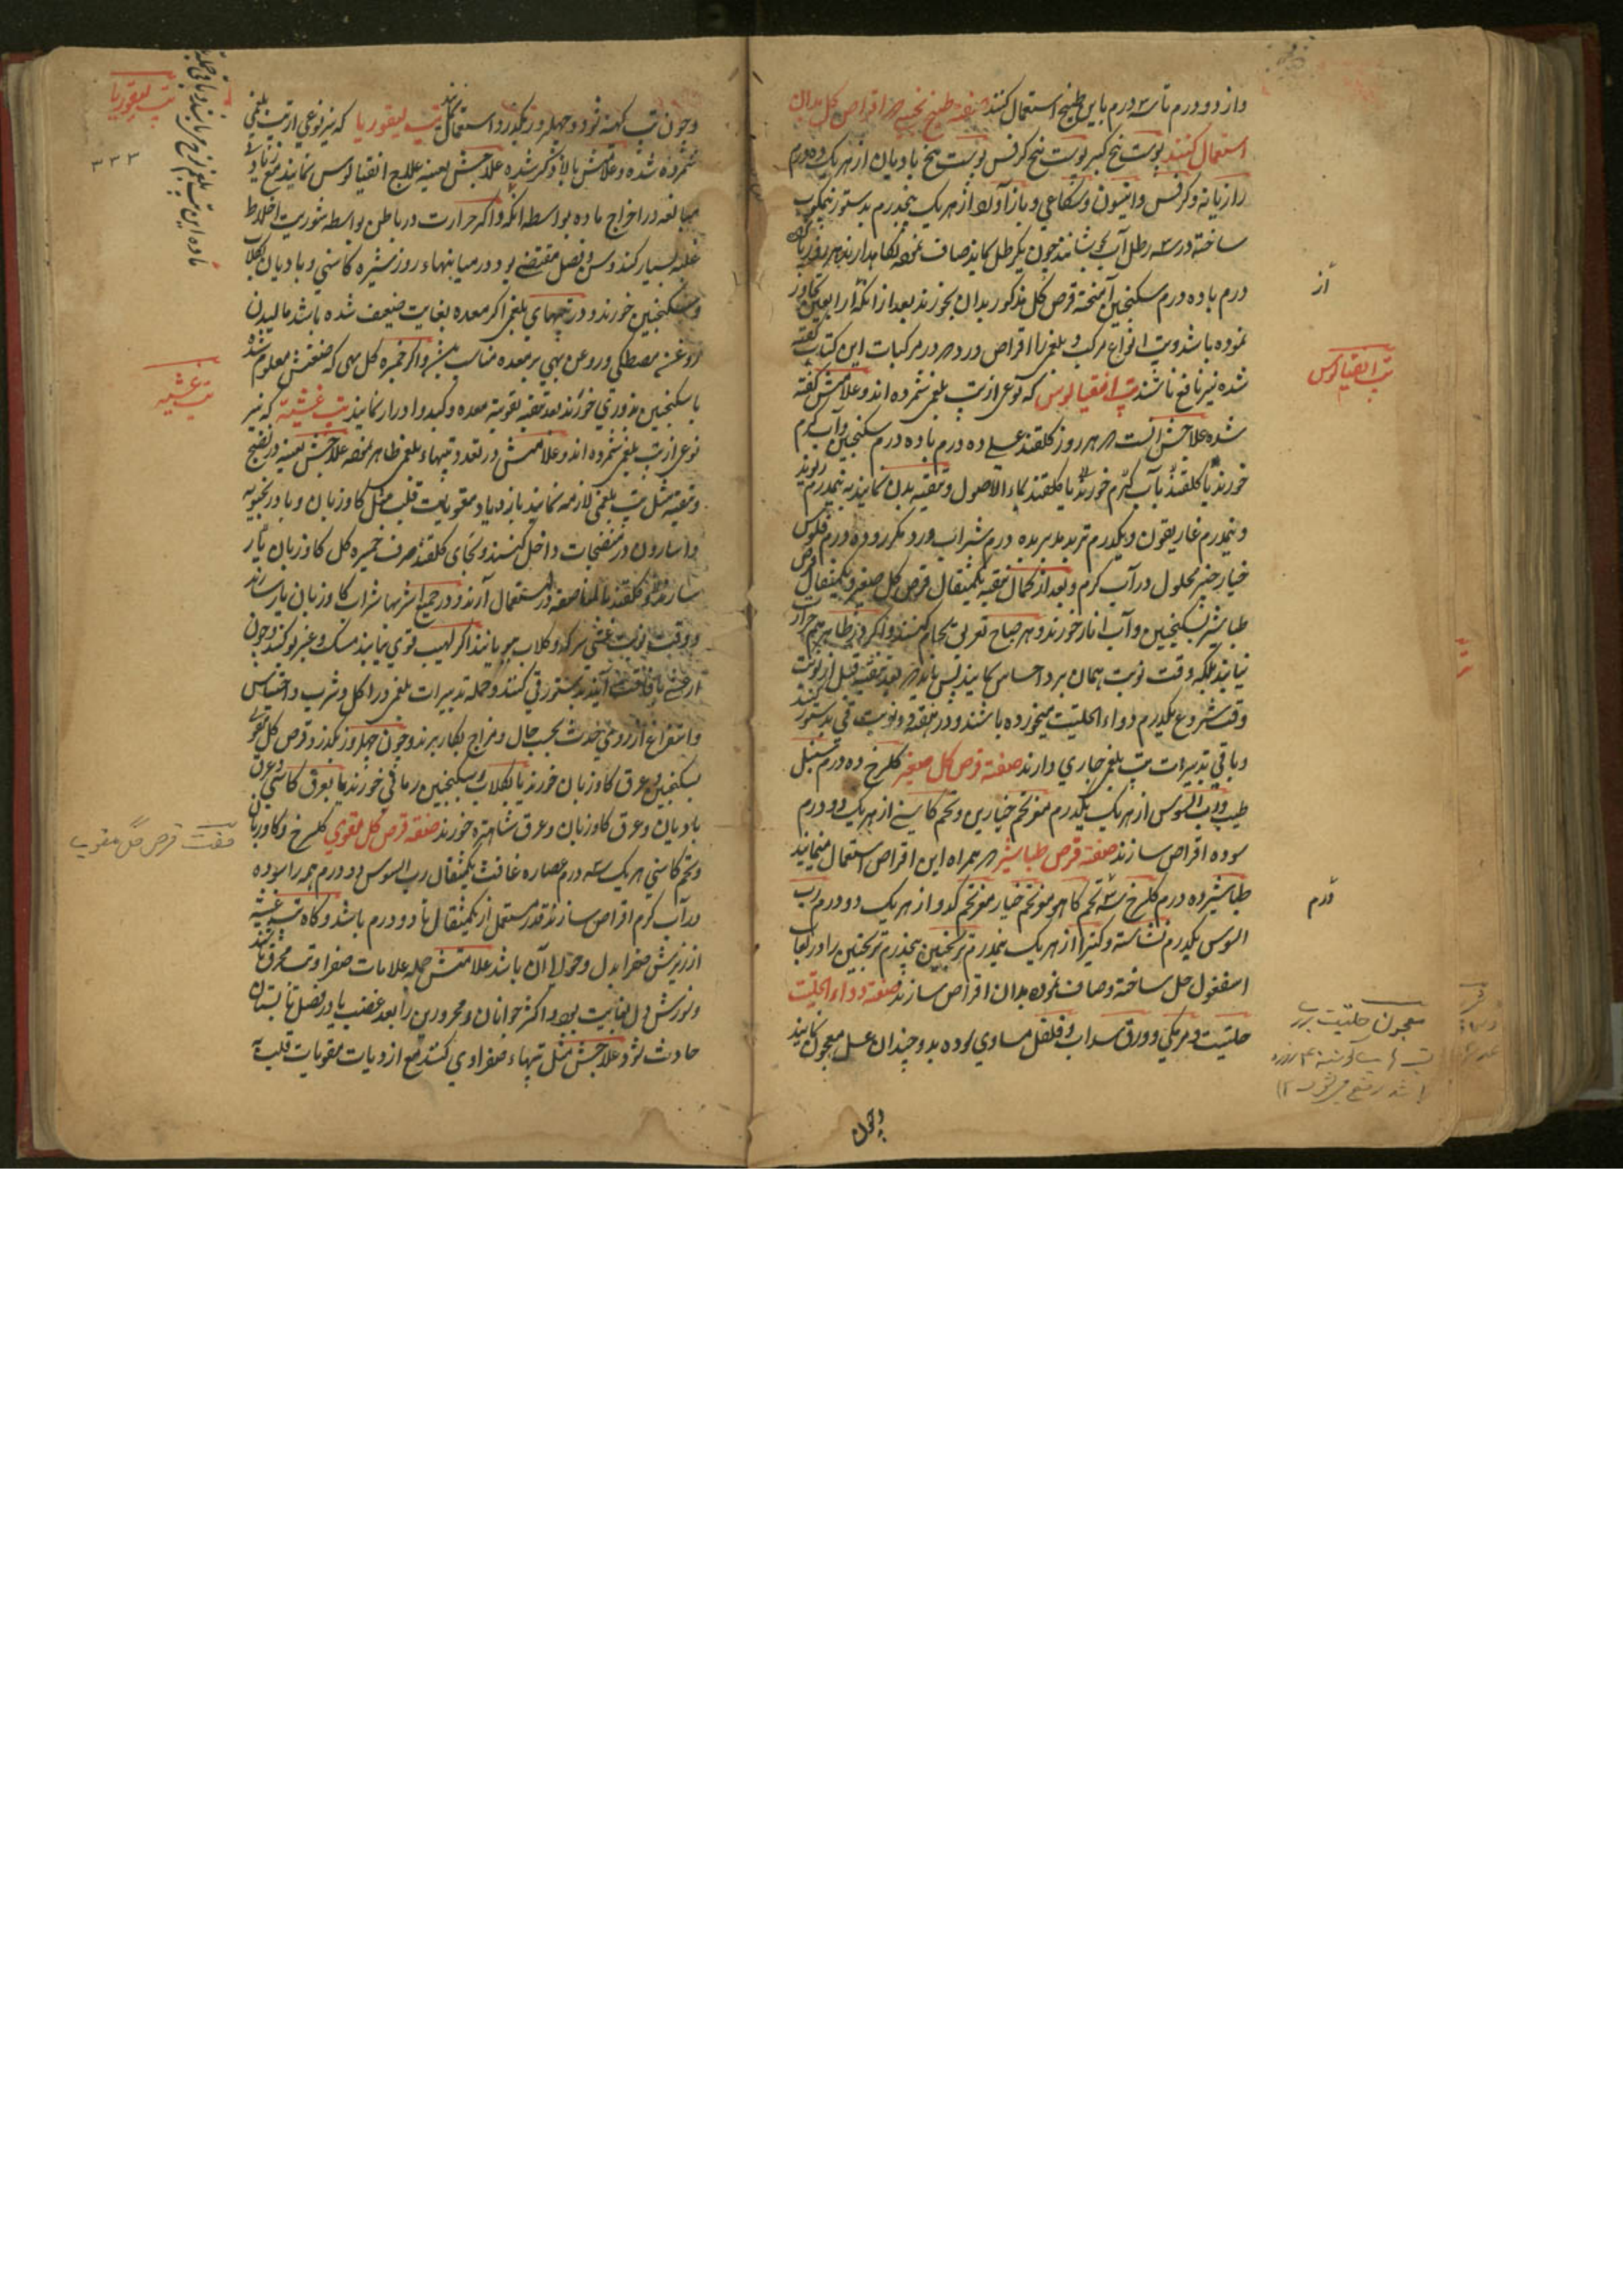 و از دو درم تا سه درم باین طبیخ استعمال کنند صفته طبیخ که اقراص کل بدان
استعمال کنند پوست بیخ کبر پوست بیخ کرفس پوست بیخ بادیان از هر یک ده درم
رازیانه و کرفس و انیسون و شکاعی و بادآورد از هر یک پنجدرم بدستور نیمکوب
ساخته در سه رطل آب بجوشانند چون یکرطل بماند صاف نموده نگاهدارند هر روز
درم با ده درم سکنجبین آمیخته قرص کل مذکور بدان بخورند بعد از آنکه از اربعین تجاوز
نموده باشد و تب انواع مرکب و بلغمی را اقراص ورد که در مرکبات این کتاب گفته
شده نیز نافع باشند تب انفیالوس که نوعی از تب بلغمی شمرده اند و علامتش گفته
شده علاجش آنست که هر روز کلقند عسلی ده درم با ده درم سکنجبین و آب کرم
خورند یا کلقند بآب کرم خورند یا کلقند بماء الاصول و تنقیه بدن نمایند به نیمدرم ریوند
و نیمدرم غاریقون و یکدرم تربد مدبر به ده درم شراب ورد مکرر و ده درم فلوس
خیارچنبر محلول در آب کرم و بعد از کمال تنقیه یکمثقال قرص کل صغیر و یکمثقال قرص
طباشیر بسکنجبین و آب انار خورند و هر صباح حمام کنند و اگر در ظاهر هم حرارت
نیابند بلکه وقت نوبت همان برد احساس نمایند پس باید که بعد تنقیه قبل از نوبت
وقت شروع یکدرم دواء الحلتیت میخورده باشند و در هفته دو نوبت قی بدستور کنند
و باقی تدبیرات تب بلغمی جاری دارند صفته قرص کل صغیر کلسرخ ده درم سنبل
طیب و رب السوس از هر یک یکدرم مغز تخم خیارین و تخم کاسنی از هر یک دو درم
سوده اقراص سازند صفته قرص طباشیر که همراه این اقراص استعمال مینمایند
طباشیر ده درم کلسرخ سه تخم کاهو مغز تخم خیار مغز تخم کدو از هر یک دو درم رب
السوس یکدرم نشاسته و کتیرا از هر یک نیمدرم ترنجبین پنجدرم ترنجبین را در لعاب
اسفغول حل ساخته و صاف نموده بدان اقراص سازند صفته دواء الحلتیت
حلتیت و مر مکی و ورق سداب و فلفل مساوی سوده بدو چندان عسل معجون نمایند
و چون
از
تب انفیالوس
درم
معجون حلتیت برای
و چون تب کهنه شود و چهل روز بکذرد استعمال نمایند تب لیفوریا که نیز نوعی از تب بلغمی
شمرده شده و علامتش بالا ذکر شده علاجش بعینه علاج انفیالوس نمایند مع زیادتی
مبالغه در اخراج ماده بواسطه آنکه و اگر حرارت در باطن بواسطه شوریت اخلاط
غلبه بسیار کند و سن و فصل مقتضی بود در میانهاء روز شیره کاسنی و بادیان بکلاب
و سکنجبین خورند و در تبهای بلغمی اکر معده بغایت ضعیف شده باشد مالیدن
روغن مصطکی و روغن بهی بر معده مناسب و اکر خمیره کل بهی که صنعتش معلوم شده
با سکنجبین بزوری خورند بعد تنقیه تقویه معده و کبد و ادرار نمایند تب غشیه که نیز
نوعی از تب بلغمی شمرده اند و علامتش در تعدد تبهاء بلغمی ظاهر نموده علاجش بعینه در نضج
و تنقیه مثل تب بلغمی لازمه نمایند بازدیاد مقویات قلب مثل کاوزبان و بادرنجبویه
و اسارون در منضجات داخل کنند و بجای کلقند صرف خمیره کل کاوزبان بکار
سازند و کلقند بالمناصفه در استعمال آرند و در جمیع اشربها شراب کاوزبان یار سازند
و وقت نوبت غشی سرکه و کلاب بویانند اکر لهیب قوی نیابند مسک و عنبر بو کنند و چون
از غشی بافاقت آیند بدستور قی کنند و جمله تدبیرات بلغمی در اکل و شرب و احتباس
و استفراغ از روی حدت بحسب حال و مزاج بکار برند و چون چهل روز بکذرد قرص کل مقوی
بسکنجبین و عرق کاوزبان خورند یا بکلاب و سکنجبین رمانی خورند یا بعرق کاسنی و عرق
بادیان و عرق کاوزبان و عرق شاهتره خورند صفته قرص کل مقوی کلسرخ و کاوزبان
و تخم کاسنی هر یک سه درم عصاره غافث یکمثقال رب السوس دو درم همه را سوده
در آب کرم اقراص سازند قدر مستعمل از یکمثقال تا دو درم باشد و کاه تب غشیه
از ریزش صفرا بدل و حوالی آن باشد علامتش جمله علامات صفرا و تب محرق باشند
و شورش دل بغایت بود و اکثر جوانان و محرورین را بعد غضب یا در فصل تابستان
حادث شود علاجش مثل تبهاء صفراوی کنند مع ازدیاد مقویات قلبیه
تب لیفوریا
۳۳۳
تب غشیه
صفت قرص گل مقوی